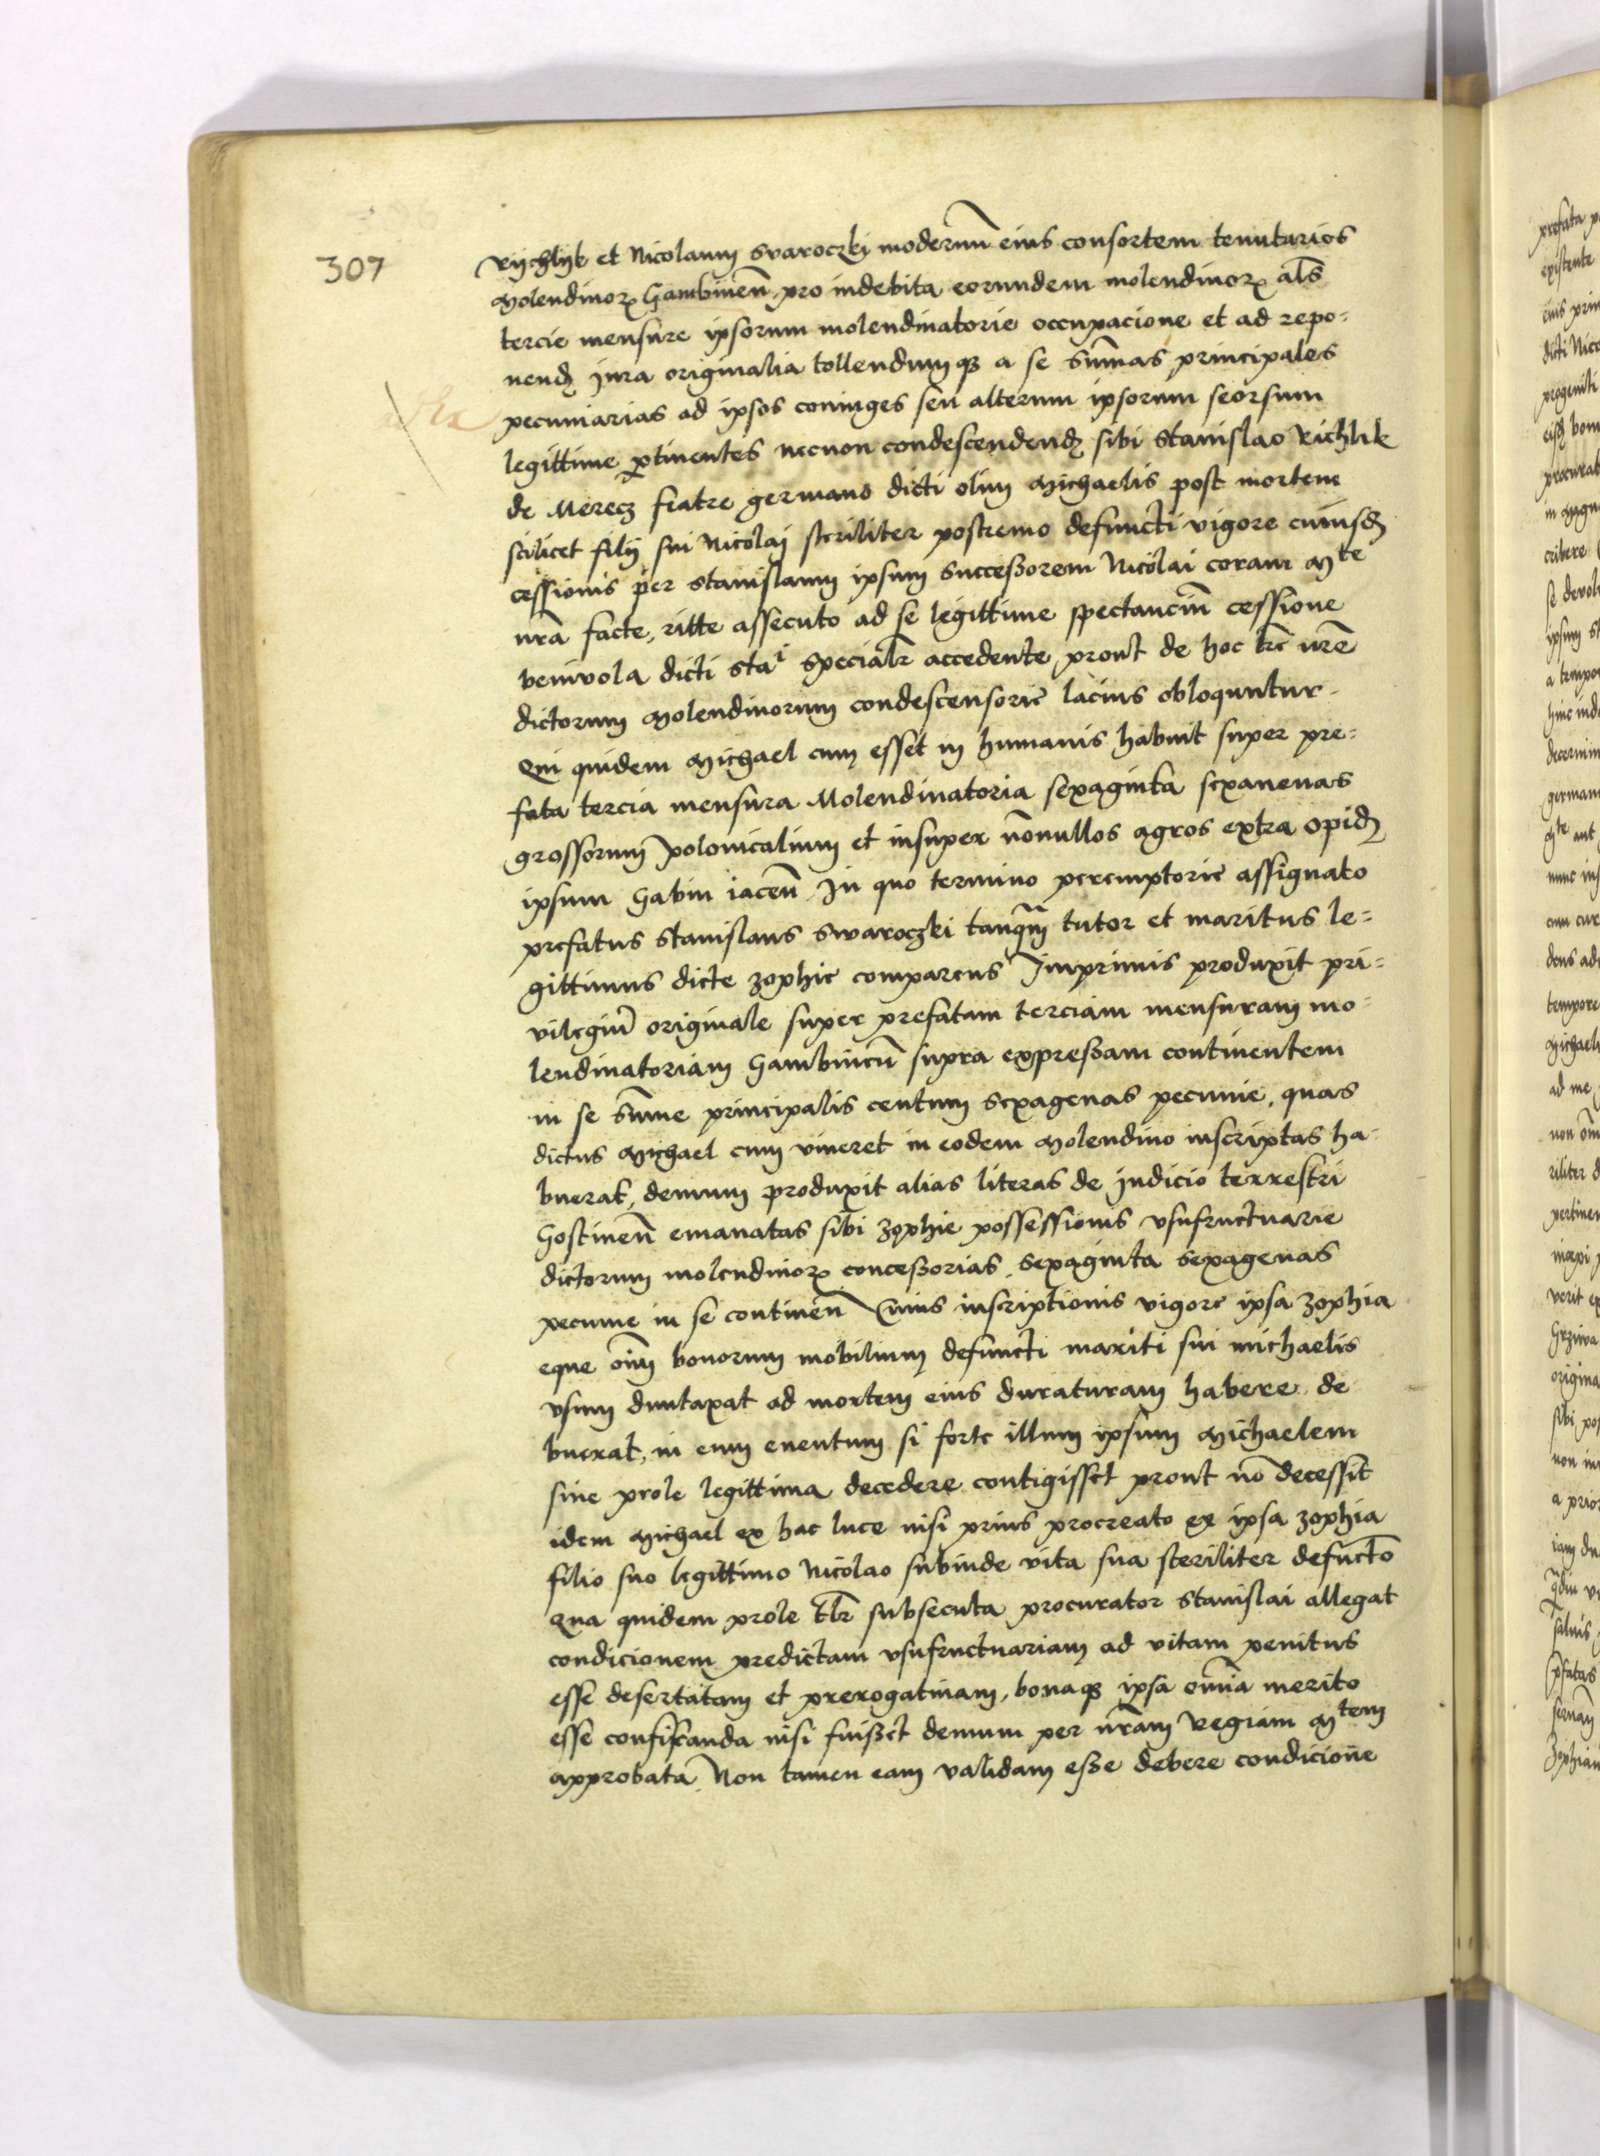 307
Rijchlijk et Nicolaum Svaroczki modernũ eius consortem tenutarios
Molendinoꝝ Gambineñ pro indebita eorundem molendinoꝝ al̃s
tercie mensure ipsorum molendinatorie occupacione et ad repo-
nendꝫ Jura originalia tollendumqꝫ a se Sũmas principales
pecuniarias ad ipsos coniuges seu alterum ipsorum seorsum
legittime ꝑtinentes necnon condescendendꝫ sibi Stanislao Richlik
de Merecz fratre germano dicti olim Michaelis post mortem
scilicet filij sui Nicolaj steriliter postremo defuncti vigore cuiusdꝫ
cessionis per Stanislaum ipsum Successorem Nicolai coram Mte
nr̃a facte, ritte assecuto ad se legittime spectanciũ cessione
benivola dicti Stai Specialr̃ accedente prout de hoc lr̃e nr̃e
dictorum Molendinorum condescensorie lacius obloquntur.
Qui quidem Michael cum esset in humanis habuit super pre-
fata tercia mensura Molendinatoria sexaginta sexanenas
grossorum polonicalium et insuper nõnullos agros extra opidꝫ
ipsum Gabin iaceñ. In quo termino peremptorie assignato
prefatus Stanislaus Swaroczki tanq̃m tutor et maritus le-
gittimus dicte Zophie comparens Imprimis produxit pri-
vilegiũ originale super prefatam terciam mensuram mo-
lendinatoriam Gambineñ supra expressam continentem
in se Sũme principalis centum sexagenas pecunie, quas
dictus Michael cum viueret in eodem Molendino inscriptas ha-
buerat, demum produxit alias literas de Judicio terrestri
Gostineñ emanatas sibi Zophie possessionis vsufructuarie
dictorum molendinoꝝ concessorias, sexaginta sexagenas
pecunie in se contineñ Cuius inscriptionis vigore ipsa Zophia
eque om̃ bonorum mobilium defuncti mariti sui michaelis
vsum duntaxat ad mortem eius duraturam habere de
buerat, in eum euentum si forte illum ipsum Michaelem
sine prole legittima decedere contigisset prout nõ decessit
idem Michael ex hac luce nisi prius procreato ex ipsa Zophia
filio suo legittimo Nicolao subinde vita sua steriliter defuncto
Qua quidem prole tlr̃ subsecuta procurator Stanislai allegat
condicionem predictam vsufructuariam ad vitam penitus
esse desertatam et prerogatiuam, bonaqꝫ ipsa om̃ia merito
esse confiscanda nisi fuisset demum per nr̃am Regiam Mtem
approbata Non tamen eam validam esse debere condicione